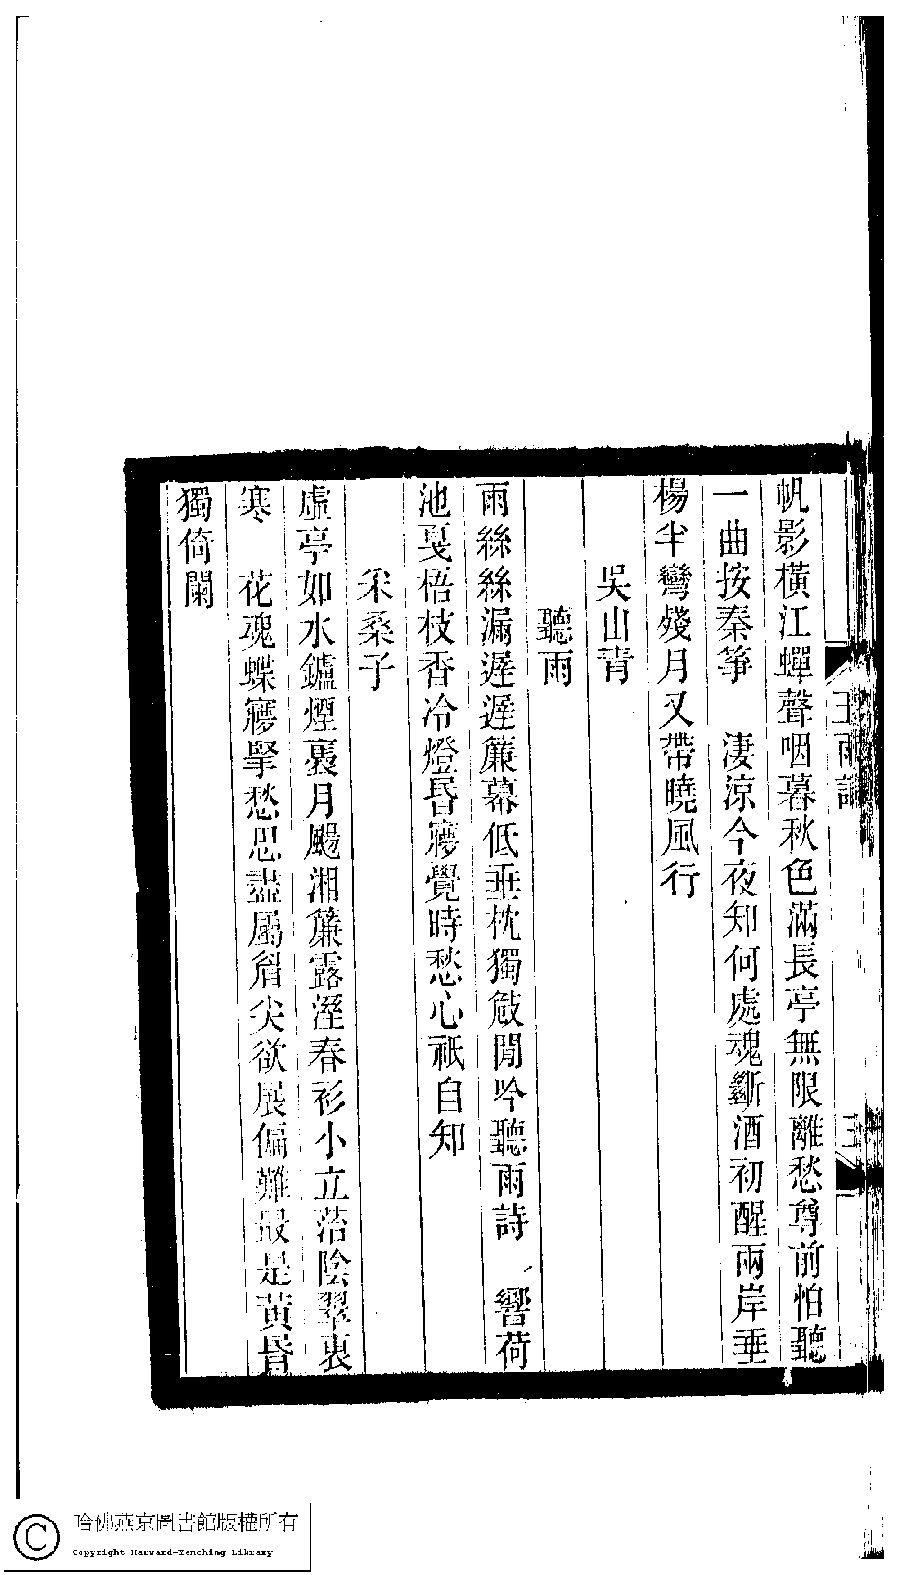 帆影橫江蟬聲咽暮秋色滿長亭無限離愁尊前怕聽
一曲按秦箏　淒涼今夜知何處魂斷酒初醒兩岸垂
楊半彎殘月又帶曉風行
吳山青
聽雨
雨絲絲漏遲遲簾幕低垂枕獨攲閒吟聽雨詩　響荷
池戛梧枝香冷燈昬寢覺時愁心祇自知
采桑子
虛亭如水鑪煙裊月颺湘簾露溼春衫小立菭陰翠裏
寒　花魂蝶寢擘愁思盡屬眉尖欲展偏難最是黃昬
獨倚闌
哈佛燕京圖書館版權所有
Copyright Harvard-Yenching Library